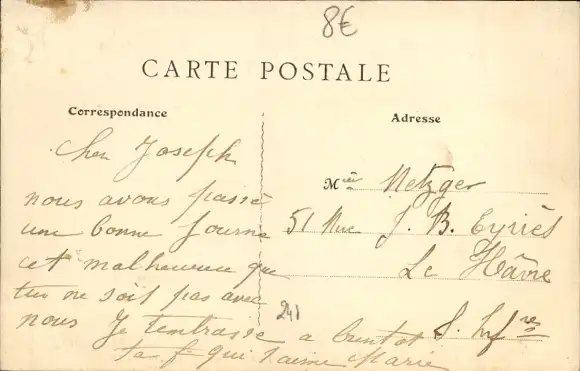 8€
CARTE POSTALE
Correspondance
Adresse
Cher Joseph
nous avons passé
une bonne Journé
cet malheureue que
tu ne soit pas avec
nous Je tembrasse a bientot
ta f qui t'aime Marie
Metzger
51 Rue J. B. Eyriès
Le Hâvre
S. Infre
241